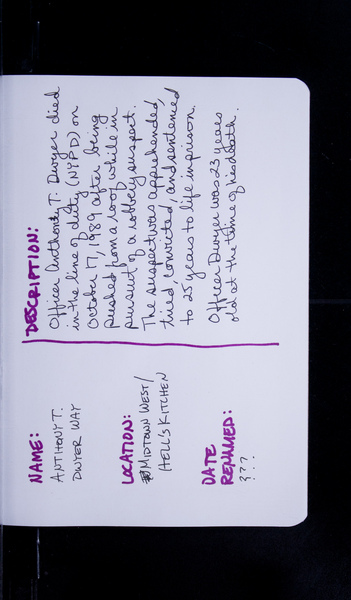 NAME:
ANTHONY T.
DWYER WAY
LOCATION:
MIDTOWN WEST/
HELL'S KITCHEN
DATE
RENAMED:
???
DESCRIPTION:
Officer Anthony T. Dwyer died
in the line of duty (NYPD) on
October 17, 1989 after being
pushed from a roof while in
pursuit of a robbery suspect.
The suspect was apprehended,
tried, convicted, and sentenced
to 25 years to life in prison.
Officer Dwyer was 23 years
old at the time of his death.